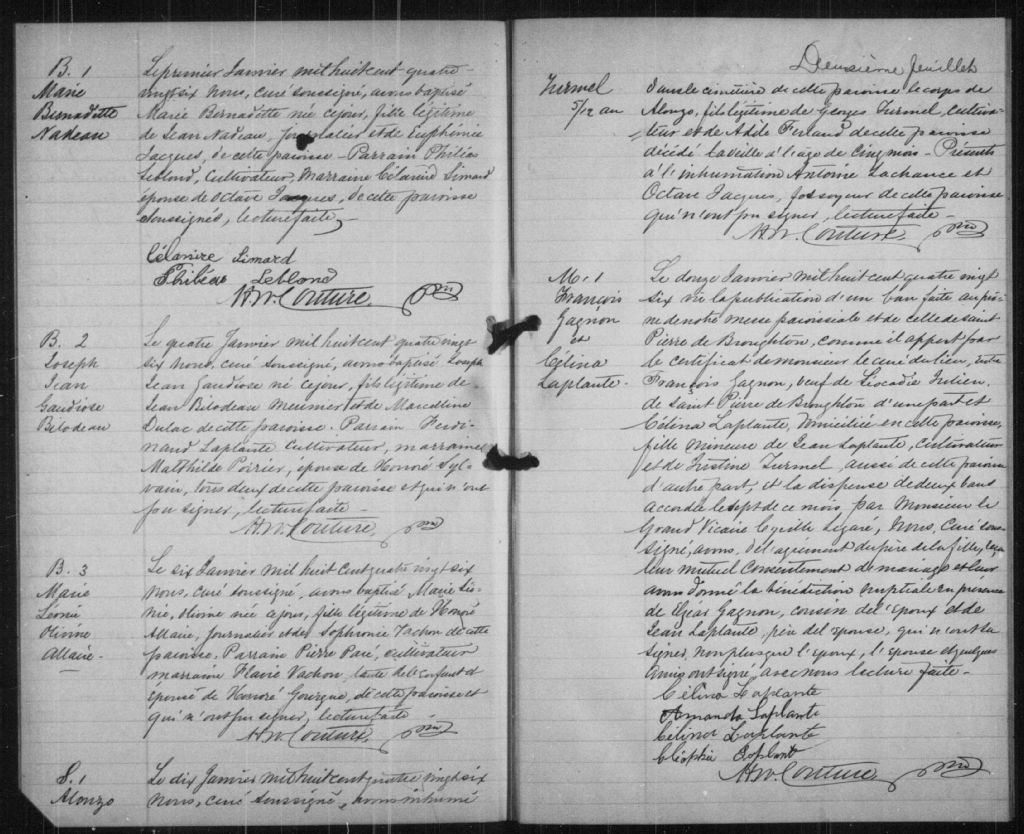 B. 1
Marie
Bernadette
Nadeau
Le premier Janvier mil huit cent quatre-
vingt six Nous, curé soussigné, avons baptisé
Marie Bernadette née ce jour, fille légitime
de Jean Nadeau, Journalier et de Euphémie
Jacques, de cette paroisse - Parrain Philias
Leblond, Cultivateur, Marraine Célanire Simard
épouse de Octave Jacques, de cette paroisse
soussignés, lecture faite -
Célanire Simard
Philéas Leblond
H. W. Couture, ptre
B. 2
Joseph
Jean
Gaudiose
Bilodeau
Le quatre Janvier mil huit cent quatre vingt
six Nous, curé soussigné, avons baptisé Joseph
Jean Gaudiose né ce jour, fils légitime de
Jean Bilodeau meunier et de Marcelline
Dulac de cette paroisse. Parrain Ferdi-
nand Laplante cultivateur, marraine
Mathilde Poirier, épouse de Honoré Syl-
vain, tous deux de cette paroisse et qui n'ont
pu signer, lecture faite -
H. W. Couture, ptre
B. 3
Marie
Léonie
Olivine
Allaire -
Le six Janvier mil huit cent quatre vingt six
Nous, curé soussigné, avons baptisé Marie Léo-
nie, Olivine née à jour, fille légitime de Honoré
Allaire, Journalier et de Sophronie Vachon de cette
paroisse. Parrain Pierre Paré, cultivateur
marraine Flavie Vachon, tante de l'enfant et
épouse de Honoré Gourgue, de cette paroisse et
qui n'ont pu signer, lecture faite
H. W. Couture, ptre
S. 1
Alonzo
Le dix Janvier mil huit cent quatre vingt six
Nous, curé soussigné, avons inhumé
Deuxième feuillet
Turmel
5/12 an
dans le cimetière de cette paroisse le corps de
Alonzo, fils légitime de Georges Turmel, cultiva-
teur et de Adèle Ferland de cette paroisse
décédé la veille à l'âge de Cinq mois - Présents
à l'inhumation Antoine Lachance et
Octave Jacques, fossoyeur de cette paroisse
qui n'ont pu signer, lecture faite -
H. W. Couture, ptre
M. 1
François
Gagnon
et
Célina
Laplante -
Le douze Janvier mil huit cent quatre vingt
six vu la publication d'un ban faite au prô-
ne de notre messe paroissiale et de celle de saint
Pierre de Broughton, comme il appert par
le certificat de monsieur le curé du lieu, entre
François Gagnon, veuf de Léocadie Julien,
de Saint Pierre de Broughton d'une part et
Célina Laplante, domiciliée en cette paroisse,
fille mineure de Jean Laplante, cultivateur
et de Justine Turmel aussi de cette paroisse
d'autre part, et la dispense de deux bans
accordée le sept de ce mois, par Monsieur le
Grand Vicaire Cyrille Légaré, Nous, Curé sous-
signé, avons, de l'agrément du père de la fille, reçu
leur mutuel Consentement de mariage et leur
avons donné la bénédiction nuptiale en présence
de Elzéar Gagnon, cousin de l'époux et de
Jean Laplante, père de l'épouse, qui n'ont su
signer, non plus que l'époux, l'épouse et quelques
amis ont signé avec nous lecture faite -
Célina Laplante
Amanda Laplante
Célina Laplante
Laplante
H. W. Couture, ptre